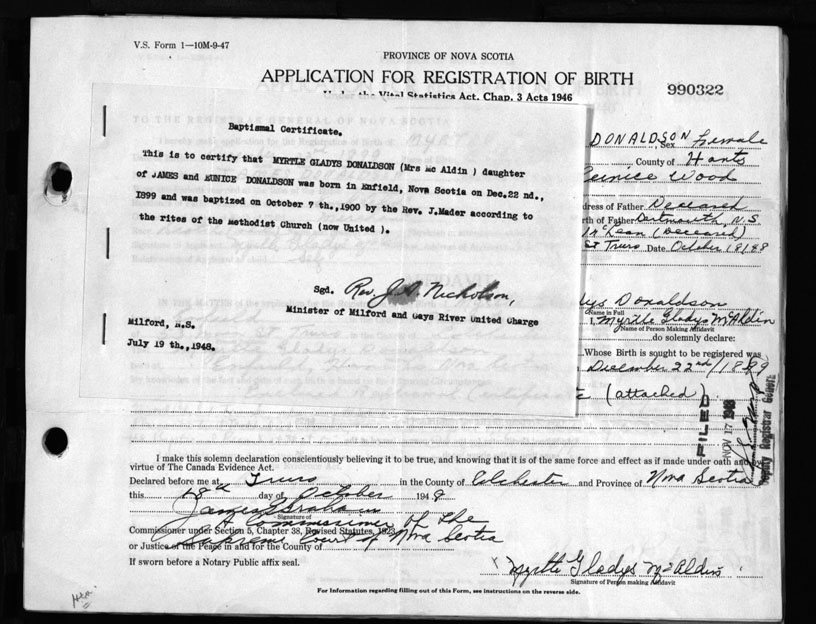 V.S. Form 1—10M-9-47
PROVINCE OF NOVA SCOTIA
APPLICATION FOR REGISTRATION OF BIRTH
990322
Under the Vital Statistics Act. Chap. 3 Acts 1946
Baptismal Certificate.
This is to certify that MYRTLE GLADYS DONALDSON (Mrs Mc Aldin ) daughter
of JAMES and EUNICE DONALDSON was born in Enfield, Nova Scotia on Dec.22 nd.,
1899 and was baptized on October 7 th.,1900 by the Rev. J.Mader according to
the rites of the Methodist Church (now United ).
Sgd. Rev. J. Nicholson,
Minister of Milford and Gays River United Charge
Milford, N.S.
July 19 th.,1948.
DONALDSON Sex Female
County of Hants
Eunice Wood
dress of Father Deceased
rth of Father Dartmouth, N.S.
McLean (Deceased)
St Truro Date October 18/48
dys Donaldson
Name in Full
I, Myrtle Gladys McAldin
Name of Person Making Affidavit
do solemnly declare:
Whose Birth is sought to be registered was
December 22nd/1899
(attached)
FILED
NOV 17 1948
Deputy Registrar General
I make this solemn declaration conscientiously believing it to be true, and knowing that it is of the same force and effect as if made under oath and by
virtue of The Canada Evidence Act.
Declared before me at Truro in the County of Colchester and Province of Nova Scotia
this 18th day of October 1948
James Graham
Signature of
A Commissioner of the
Commissioner under Section 5, Chapter 38, Revised Statutes, 1923
Supreme Court of Nova Scotia
or Justice of the Peace in and for the County of
If sworn before a Notary Public affix seal.
Myrtle Gladys McAldin
Signature of Person making Affidavit
For Information regarding filling out of this Form, see instructions on the reverse side.